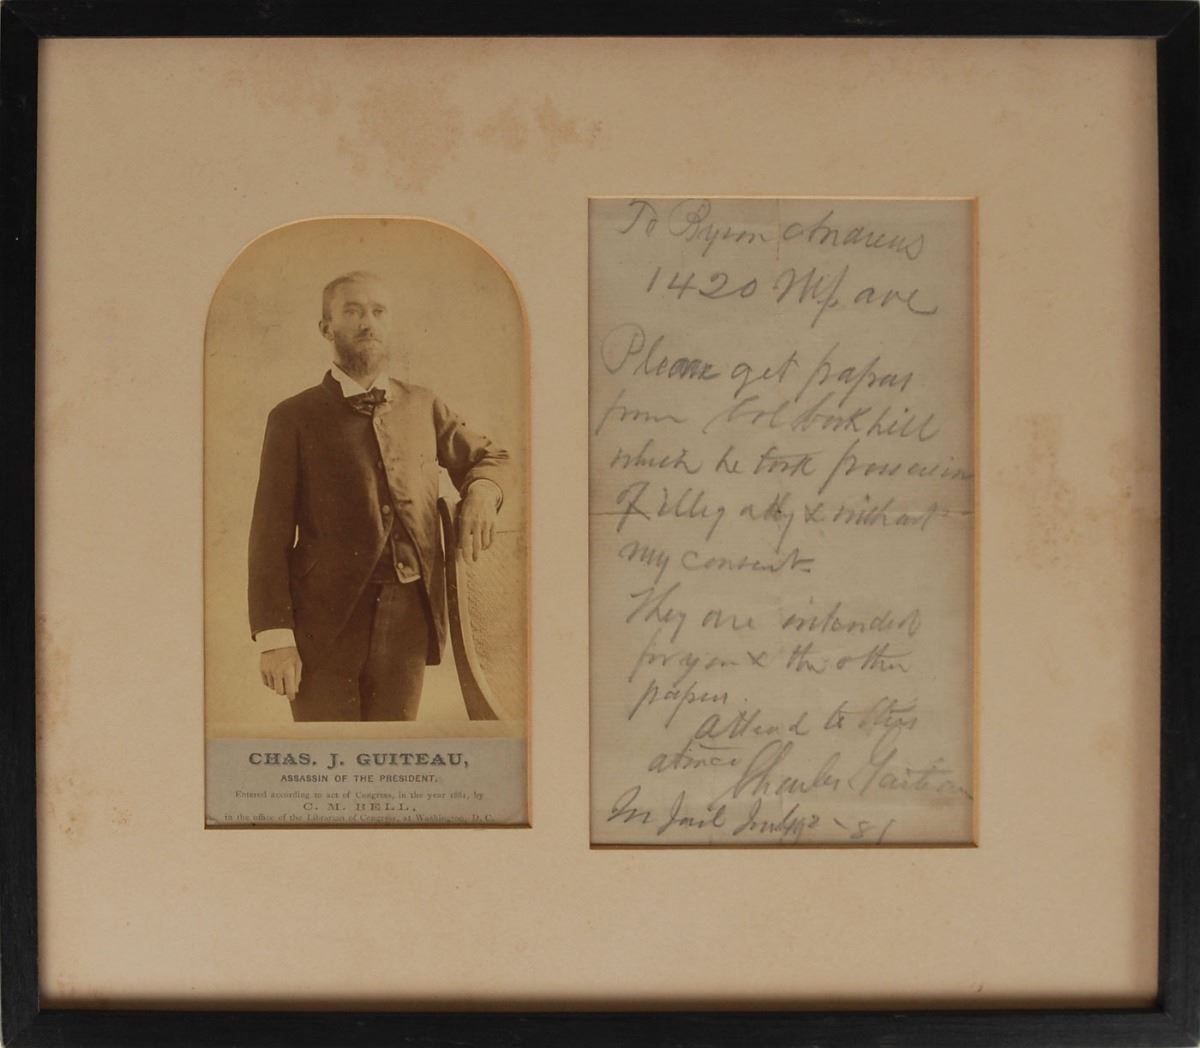 CHAS. J. GUITEAU,
ASSASSIN OF THE PRESIDENT.
Entered according to act of Congress, in the year 1881, by
C. M. BELL,
in the office of the Librarian of Congress, at Washington, D. C.
To Byron Andrews
1420 ave
Please get papers
from Col Cork hill
which he took possession
of illeg ally & without
my consent.
They are intended
for you & the other
papers.
attend to this
at once
Charles Guiteau
In Jail July 2 - 81